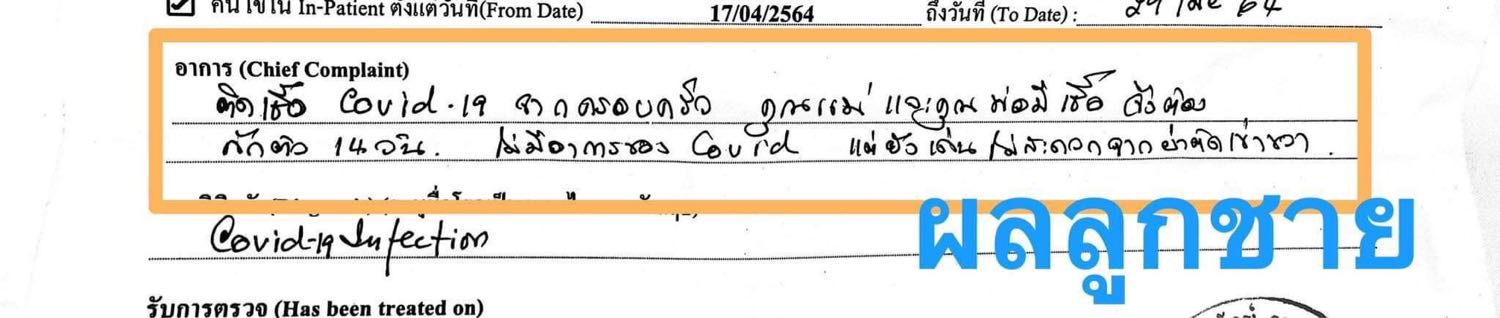 คนไข้ใน In-Patient ตั้งแต่วันที่(From Date) 17/04/2564 ถึงวันที่ (To Date) : 29 เมย 64
อาการ (Chief Complaint)
ติดเชื้อ Covid-19 จากครอบครัว คุณแม่ และคุณพ่อมีเชื้อ จึงต้อง
กักตัว 14 วัน. ไม่มีอาการของ Covid แต่ยังเดินไม่สะดวกจากผ่าตัดเข่าขวา.
Covid-19 Infection
ผลลูกชาย
รับการตรวจ (Has been treated on)